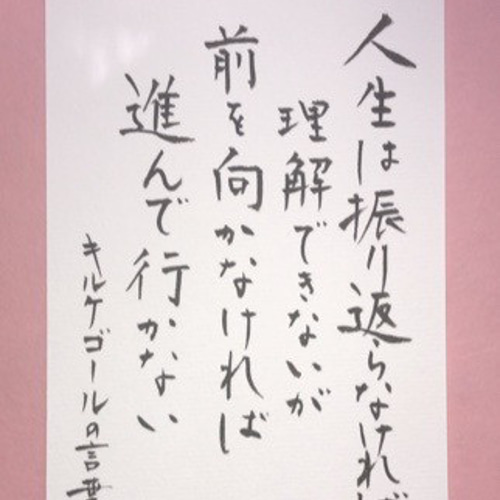 人生は振り返らなければ
理解できないが
前を向かなければ
進んで行かない
キルケゴールの言葉